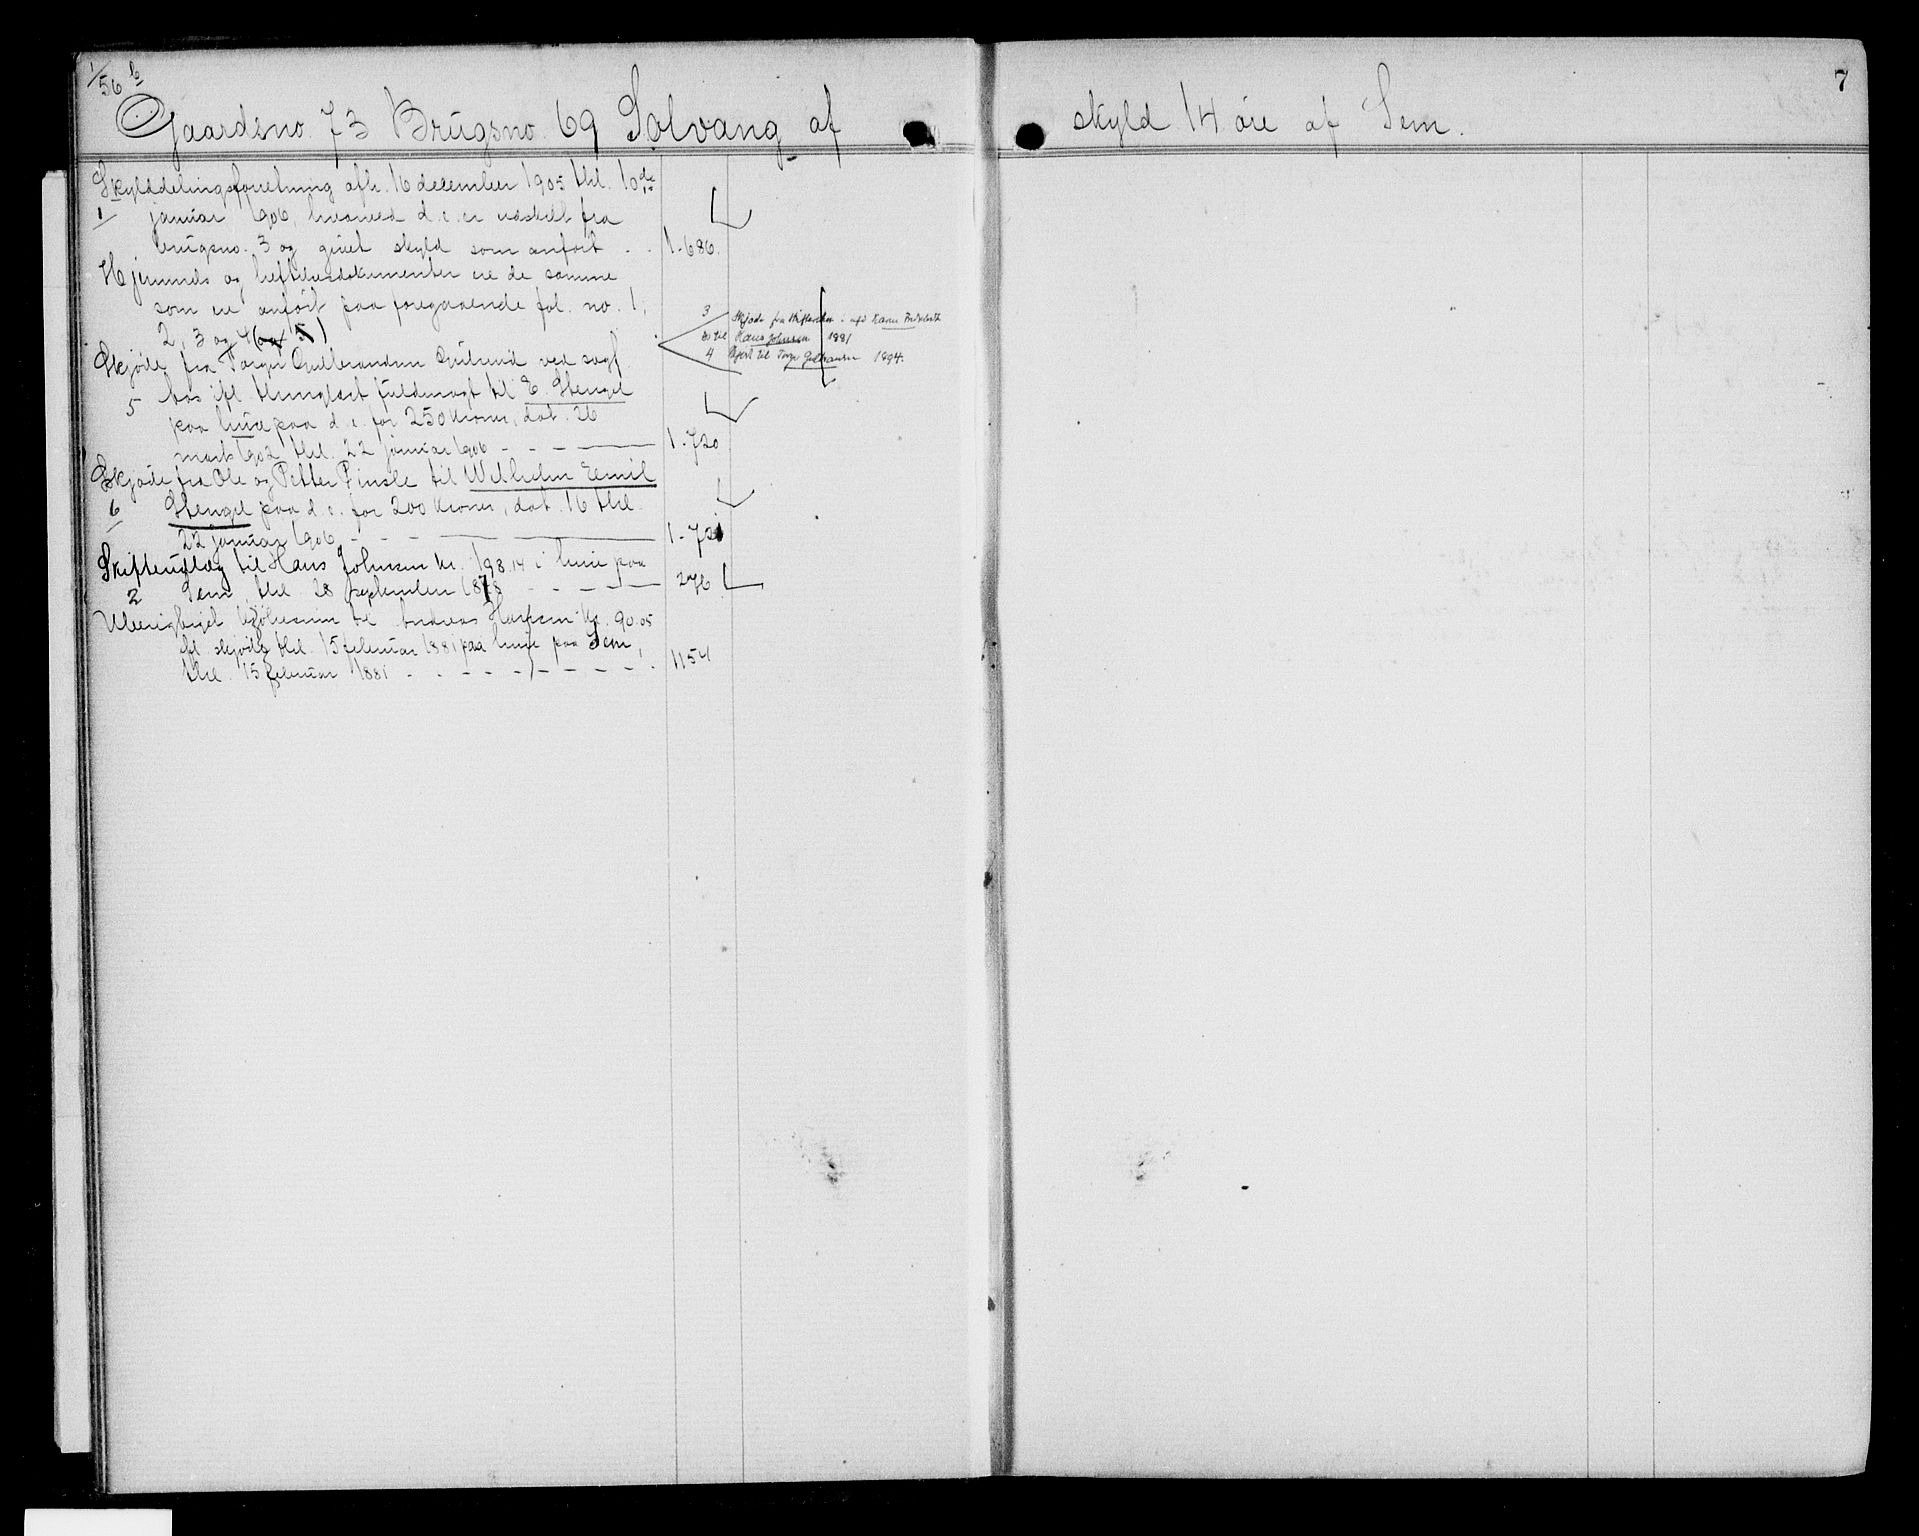 1/56 b
Gaardsno. 73 Brugsno. 69 Solvang af skyld 14 øre af Sem.
7
Skylddelingsforretning afh. 16 december 1905 thl. 10de
1 januar 1906, hvorved d. e. er udskilt fra
brugsno. 3 og givet skyld som anført - - 1-686.
Hjemmels og heftelsesdokumenter ere de samme
som ere anført paa foregaaende fol. no. 1,
2, 3 og 4 (og 5)
3 Skjøde fra Skifteretten i
til Hans Johnsen 1881
4 Skjøt til 1894.
Skjøde fra Torger Gulbrandsen ved sagf
5 ifl. thinglæst fuldmagt til E. Stengel
paa huse paa d. e. for 250 kroner, dat. 26
marts 1902 thl. 22 januar 1906 - - - 1-720
Skjøde fra Ole og Petter Pinsle til Wilhelm Emil
6 Stengel paa d. e. for 200 kroner, dat. 16 thl.
22 januar 1906 - - - 1-721
Skifteudlæg til Hans Johnsen kr. 198.14 i huse paa
2 Sem, thl 28 september 1878 - - - 276
Andreas Hansen kr. 90.05
ifl. skjøde thl. 15 februar 1881 paa huse paa Sem,
thl. 15 februar 1881 - - - - - - - 1154